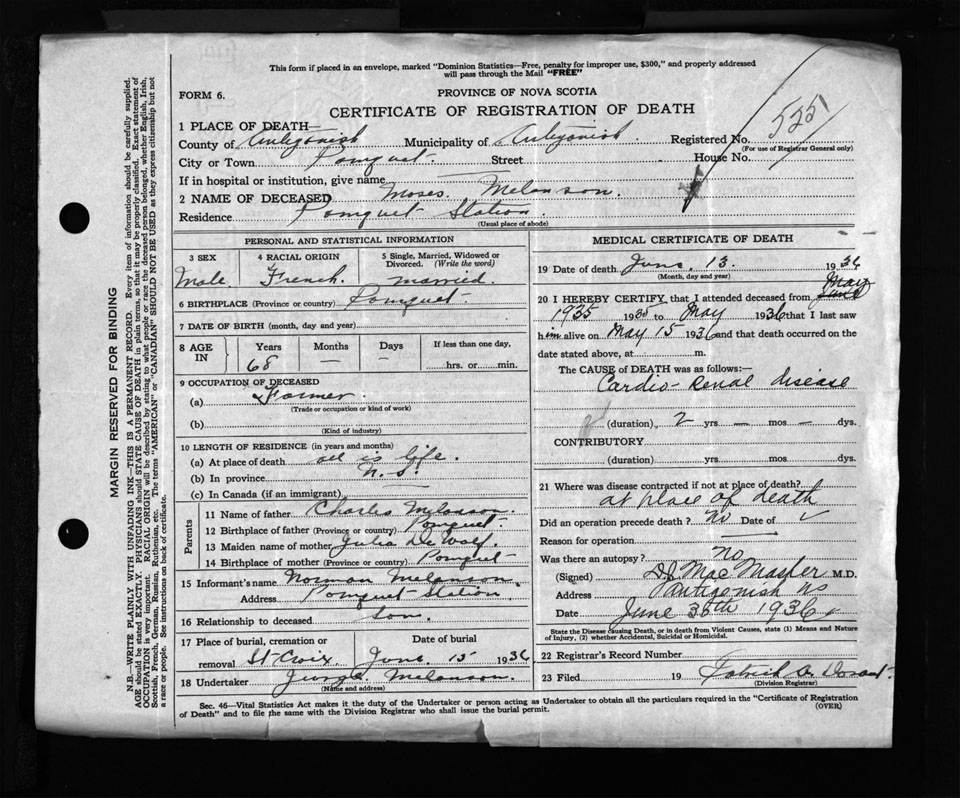 This form if placed in an envelope, marked "Dominion Statistics—Free, penalty for improper use, $300," and properly addressed
will pass through the Mail "FREE"
FORM 6.
PROVINCE OF NOVA SCOTIA
CERTIFICATE OF REGISTRATION OF DEATH
525
1 PLACE OF DEATH—
County of Antigonish Municipality of Antigonish Registered No.
(For use of Registrar General only)
City or Town Pomquet Street House No.
If in hospital or institution, give name
2 NAME OF DECEASED Moses Melanson
Residence Pomquet Station
(Usual place of abode)
PERSONAL AND STATISTICAL INFORMATION
3 SEX 4 RACIAL ORIGIN 5 Single, Married, Widowed or Divorced. (Write the word)
Male French married
6 BIRTHPLACE (Province or country) Pomquet
7 DATE OF BIRTH (month, day and year)
8 AGE IN Years Months Days If less than one day,
68 — — hrs. or min.
9 OCCUPATION OF DECEASED
(a) Farmer
(Trade or occupation or kind of work)
(b)
(Kind of industry)
10 LENGTH OF RESIDENCE (in years and months)
(a) At place of death all is life.
(b) In province N.S.
(c) In Canada (if an immigrant)
Parents
11 Name of father Charles Melanson
12 Birthplace of father (Province or country) Pomquet
13 Maiden name of mother Julia DeWolf
14 Birthplace of mother (Province or country) Pomquet
15 Informant's name Norman Melanson
Address Pomquet Station
16 Relationship to deceased Son
17 Place of burial, cremation or removal Date of burial
St Croix June 15 1936
18 Undertaker George Melanson
(Name and address)
MEDICAL CERTIFICATE OF DEATH
19 Date of death June 13. 1936
(Month, day and year)
20 I HEREBY CERTIFY, that I attended deceased from May
1935 1935 to May 1936 that I last saw
him alive on May 15 1936 and that death occurred on the
date stated above, at m.
The CAUSE of DEATH was as follows:—
Cardio-Renal disease
(duration) 2 yrs — mos — dys.
CONTRIBUTORY
(duration) yrs. mos. dys.
21 Where was disease contracted if not at place of death?
at place of death
Did an operation precede death? No Date of
Reason for operation
Was there an autopsy? no
(Signed) MacMaster M.D.
Address Antigonish NS
Date June 30th 1936
State the Disease causing Death, or in death from Violent Causes, state (1) Means and Nature
of Injury, (2) whether Accidental, Suicidal or Homicidal.
22 Registrar's Record Number
23 Filed 19
(Division Registrar)
Sec. 46—Vital Statistics Act makes it the duty of the Undertaker or person acting as Undertaker to obtain all the particulars required in the "Certificate of Registration
of Death" and to file the same with the Division Registrar who shall issue the burial permit.
(OVER)
MARGIN RESERVED FOR BINDING
N.B.—WRITE PLAINLY WITH UNFADING INK—THIS IS A PERMANENT RECORD. Every item of information should be carefully supplied.
AGE should be stated EXACTLY. PHYSICIANS should STATE CAUSE OF DEATH in plain terms, so that it may be properly classified. Exact statement of
OCCUPATION is very important. RACIAL ORIGIN will be described by stating to what people or race the deceased person belonged, whether English, Irish,
Scottish, French, German, Russian, Ruthenian, etc. The terms "AMERICAN" or "CANADIAN" SHOULD NOT BE USED as they express citizenship but not
a race or people. See instructions on back of certificate.